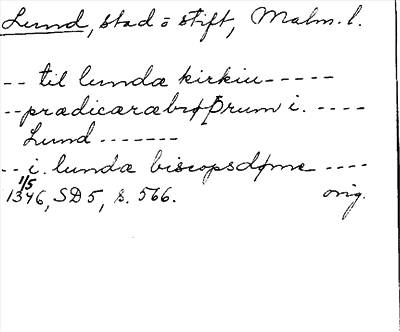 Lund, stad o stift, Malm. l.
-- til lundæ kirkiu-----
--prædicaræbrøþrum i. ----
Lund -------
-- i. lundæ biscopsdøme ----
1/5
1346, SD 5, s. 566. orig.